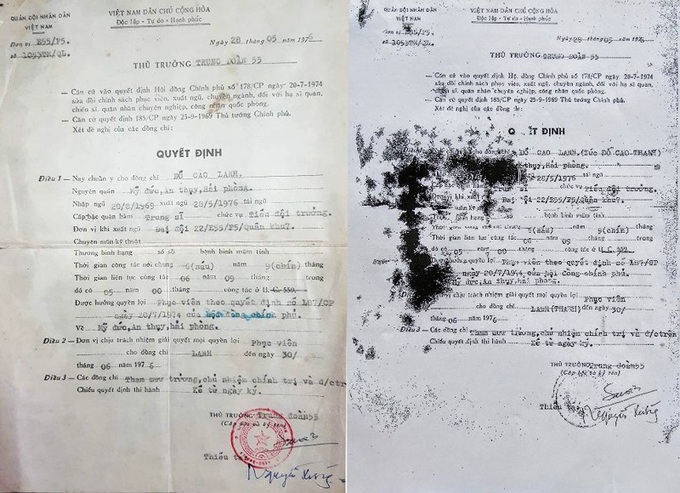 QUÂN ĐỘI NHÂN DÂN
VIỆT NAM
VIỆT NAM DÂN CHỦ CỘNG HÒA
Độc lập - Tự do - Hạnh phúc
Đơn vị E55/F5.
số 1053TM/QL.
Ngày 28 tháng 05 năm 1976
THỦ TRƯỞNG TRUNG ĐOÀN 55
— Căn cứ vào quyết định Hội đồng Chính phủ số 178/CP ngày 20-7-1974
sửa đổi chính sách phục viên, xuất ngũ, chuyển ngành, đối với hạ sĩ quan,
chiến sĩ, quân nhân chuyên nghiệp, công nhân quốc phòng.
— Căn cứ quyết định 185/CP ngày 25-9-1969 Thủ tướng Chính phủ.
Xét đề nghị của các đồng chí:
QUYẾT ĐỊNH
Điều 1 — Nay chuẩn y cho đồng chí ĐỖ CAO LANH.
Nguyên quán Kỳ đức, An thụy, Hải phòng.
Nhập ngũ 20/8/1969 xuất ngũ 28/5/1976 tái ngũ
Cấp bậc quân hàm Trung sĩ chức vụ Tiểu đội trưởng.
Đơn vị khi xuất ngũ Đại đội 22/E55/F5/Quân khu7.
Chuyên môn kỹ thuật
Thương binh hạng số sổ bệnh binh mãm tính
Thời gian công tác nói chung 6(sáu) năm 9(chín) tháng
Thời gian liên tục công tác 06 năm 09 tháng trong
đó có 05 năm 00 tháng công tác ở
Được hưởng quyền lợi Phục viên theo quyết định số L97/CP
ngày 20/7/1974 của hội đồng chính phủ.
Về Kỳ đức, An thụy, hải phòng.
Điều 2 — Đơn vị chịu trách nhiệm giải quyết mọi quyền lợi Phục viên
cho đồng chí LANH đến ngày 30/
tháng 06 năm 1976
Điều 3 — Các đồng chí Tham mưu trưởng, chủ nhiệm chính trị và đ/ctrên
Chiếu quyết định thi hành Kể từ ngày ký.
THỦ TRƯỞNG Trung đoàn55
(Cấp bậc và ký tên)
Thiếu tá
QUÂN ĐỘI NHÂN DÂN
VIỆT NAM
VIỆT NAM DÂN CHỦ CỘNG HÒA
Độc lập - Tự do - Hạnh phúc
Đơn vị E55/F5.
số 1053TM/QL.
Ngày 28 tháng 05 năm 1976
THỦ TRƯỞNG TRUNG ĐOÀN 55
— Căn cứ vào quyết định Hội đồng Chính phủ số 178/CP ngày 20-7-1974
sửa đổi chính sách phục viên, xuất ngũ, chuyển ngành, đối với hạ sĩ quan,
chiến sĩ, quân nhân chuyên nghiệp, công nhân quốc phòng.
— Căn cứ quyết định 185/CP ngày 25-9-1969 Thủ tướng Chính phủ.
Xét đề nghị của các đồng chí:
QU ẾT ĐỊNH
ĐỖ CAO LANH.(Tức ĐỖ CAO THANH)
thụy, Hải phòng.
28/5/1976 tái ngũ
chức vụ Tiểu đội trưởng.
Đại đội 22/E55/F5/Quân khu7.
bệnh binh mãm tính
Thời gian công tác nói chung 6(sáu) năm 9(chín) tháng
Thời gian liên tục công tác 06 năm 09 tháng trong
đó có 05 năm 00 tháng công tác ở
Phục viên theo quyết định số L97/CP
ngày 20/7/1974 của hội đồng chính phủ.
Kỳ đức, An thụy, hải phòng.
chịu trách nhiệm giải quyết mọi quyền lợi Phục viên
cho đồng chí LANH(THANH) đến ngày 30/
tháng 06 năm 1976
Điều 3 — Các đồng chí Tham mưu trưởng, chủ nhiệm chính trị và đ/ctrên
Chiếu quyết định thi hành Kể từ ngày ký.
THỦ TRƯỞNG Trung đoàn55
(Cấp bậc và ký tên)
Thiếu tá